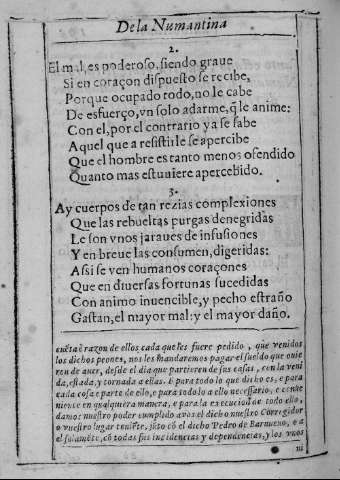 De la Numantina
2.
El mal, es poderoso, siendo graue
Si en coraçon dispuesto se recibe,
Porque ocupado todo, no le cabe
De esfuerço, vn solo adarme, q̃ le anime:
Con el, por el contrario ya se sabe
Aquel que a resistirle se apercibe
Que el hombre es tanto menos ofendido
Quanto mas estuuiere apercebido.
3.
Ay cuerpos de tan rezias complexiones
Que las rebueltas purgas denegridas
Le son vnos jaraues de infusiones
Y en breue las consumen, digeridas:
Assi se ven humanos coraçones
Que en diuersas fortunas sucedidas
Con animo inuencible, y pecho estraño
Gastan, el mayor mal: y el mayor daño.
cuẽta è razon de ellos, cada que les fuere pedido, que venidos
los dichos peones, nos les mandaremos pagar el sueldo que ouie
ren de auer, desde el dia que partieren de sus casas, con la veni
da, estada, y tornada a ellas. E para todo lo que dicho es, e para
cada cosa e parte de ello, e para todo lo a ello necessario, e conue
niente en qualquiera manera, e para la execucion de todo ello,
damos nuestro poder cumplido a vos el dicho nuestro Corregidor
o vuestro lugar teniẽte, jũto cõ el dicho Pedro de Barnueuo, e a
el solamẽte, cõ todas sus incidencias y dependencias, y los vnos